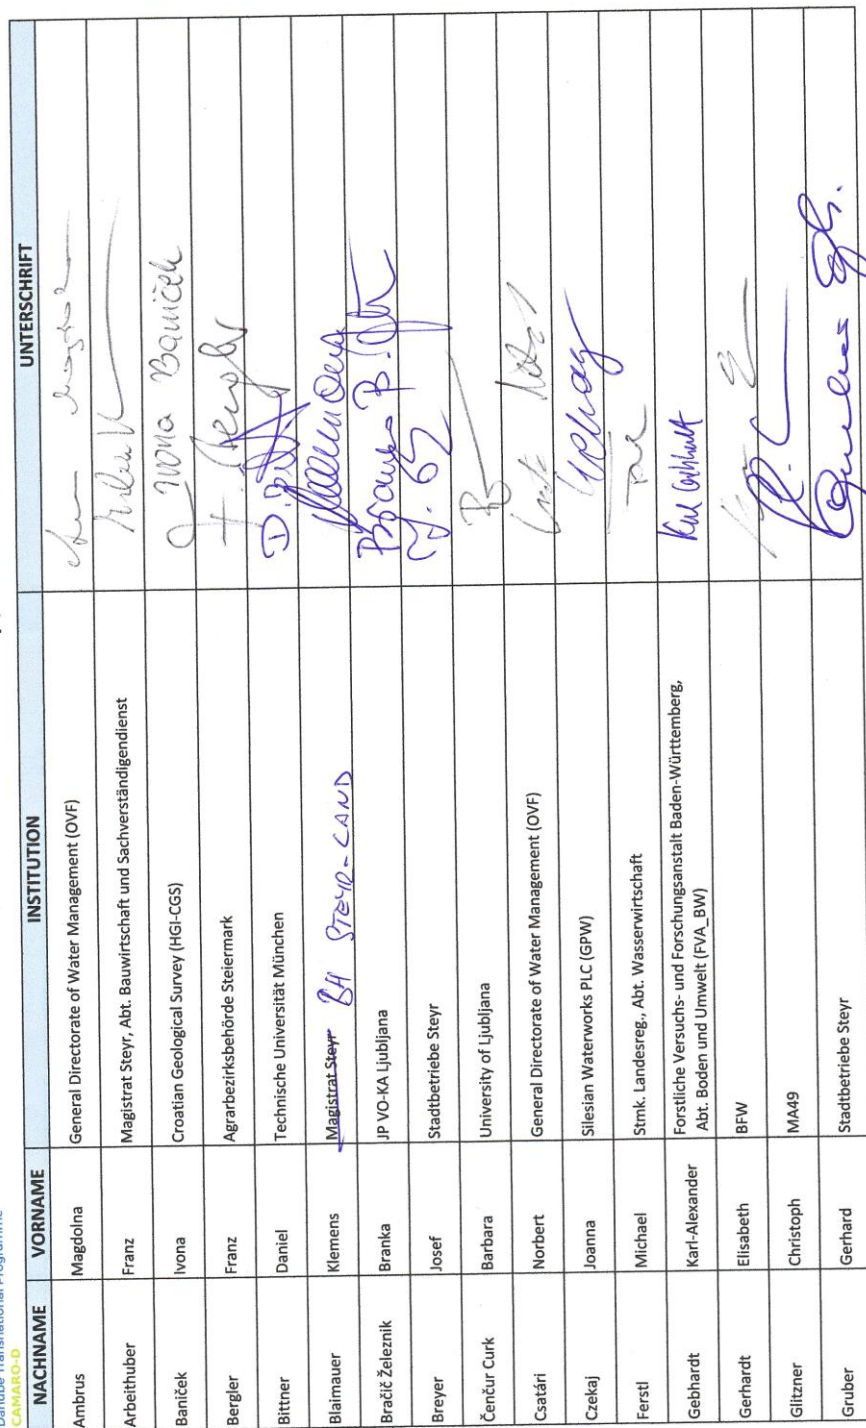 Danube Transnational Programme
CAMARO-D
NACHNAME VORNAME INSTITUTION UNTERSCHRIFT
Ambrus Magdolna General Directorate of Water Management (OVF)
Arbeithuber Franz Magistrat Steyr, Abt. Bauwirtschaft und Sachverständigendienst
Baniček Ivona Croatian Geological Survey (HGI-CGS) Ivona Baniček
Bergler Franz Agrarbezirksbehörde Steiermark F. Bergler
Bittner Daniel Technische Universität München
Blaimauer Klemens Magistrat Steyr BH STEYR-LAND
Bračič Železnik Branka JP VO-KA Ljubljana Branka B.
Breyer Josef Stadtbetriebe Steyr
Čenčur Curk Barbara University of Ljubljana
Csatári Norbert General Directorate of Water Management (OVF)
Czekaj Joanna Silesian Waterworks PLC (GPW) Czekaj
Ferstl Michael Stmk. Landesreg., Abt. Wasserwirtschaft
Gebhardt Karl-Alexander Forstliche Versuchs- und Forschungsanstalt Baden-Württemberg,
Abt. Boden und Umwelt (FVA_BW)
Gerhardt Elisabeth BFW
Glitzner Christoph MA49
Gruber Gerhard Stadtbetriebe Steyr